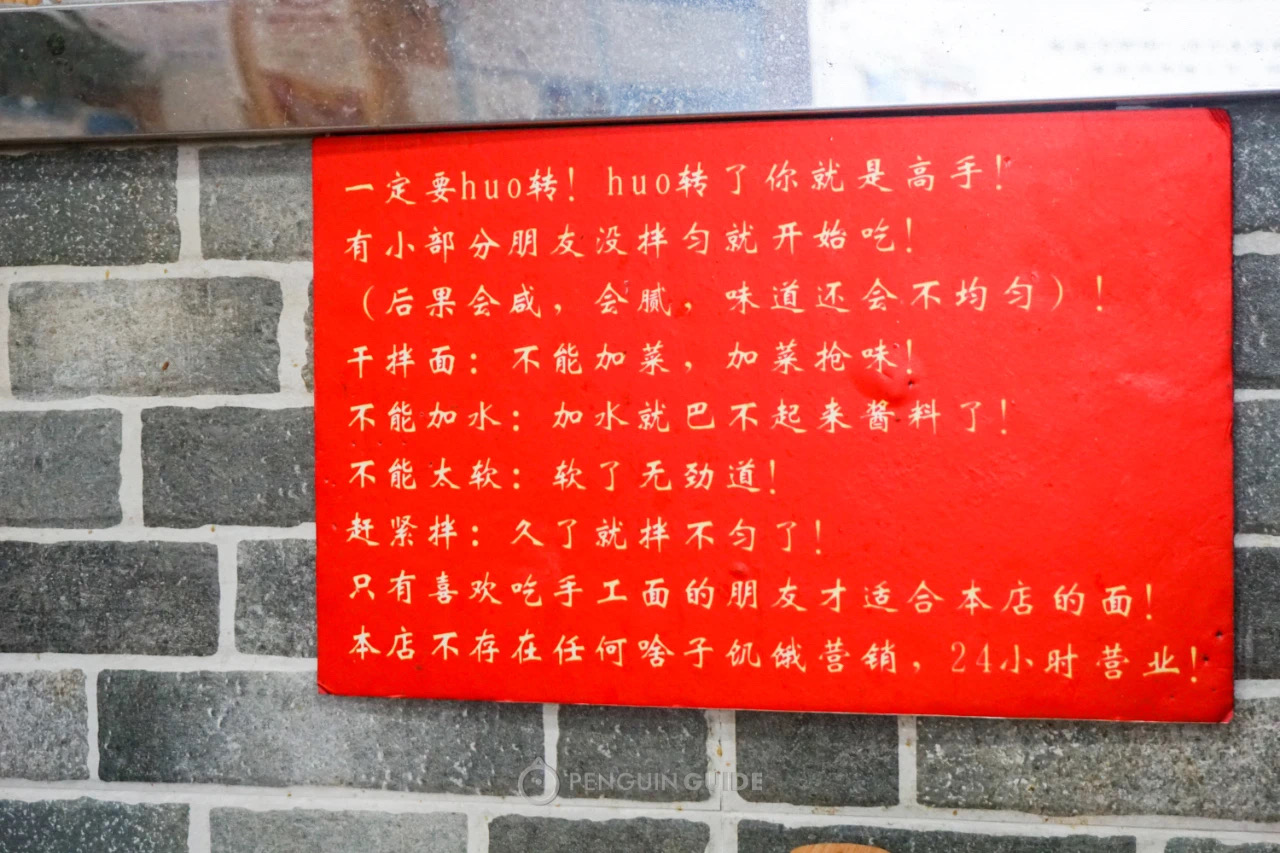 一定要huo转！huo转了你就是高手！
有小部分朋友没拌匀就开始吃！
（后果会咸，会腻，味道还会不均匀）！
干拌面：不能加菜，加菜抢味！
不能加水：加水就巴不起来酱料了！
不能太软：软了无劲道！
赶紧拌：久了就拌不匀了！
只有喜欢吃手工面的朋友才适合本店的面！
本店不存在任何啥子饥饿营销，24小时营业！
PENGUIN GUIDE